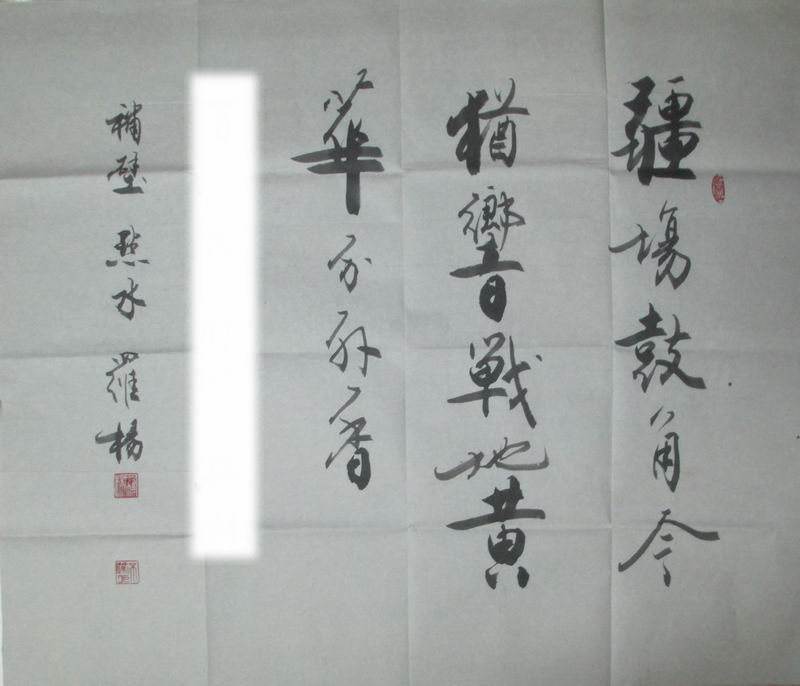 疆場鼓角今
猶響戰地黃
華分外香
補壁 水 羅楊